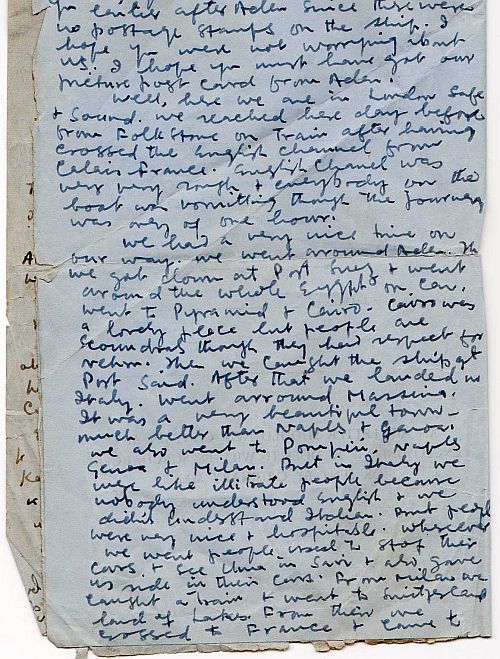 yu earlier after Aden since there were
no postage stamps on the ship. I
hope yu were not worrying about
us. I hope yu must have got our
picture post card from Aden.
Well, here we are in London Safe
& Sound. we reached here day before
from Folkstone on Train after having
crossed the English Channel from
Calais France. English Chanel was
very very rough & everybody on the
boat was vomitting though the journey
was only of one hour.
we had a very nice time on
our way. we went around Aden. Th
we got down at Port Suez & went
around the whole Egypt on car.
went to Pyramid & Cairo. Cairo was
a lovely place but people are
Scoundrals though they had respect for
Nehru. Then we caught the ship at
Port Said. After that we landed in
Italy. went arround Massina.
It was a very beautiful town -
much better than Naples & Genoa.
we also went to Pompeii, Naples
Genoa & Milan. But in Italy we
were like illitrate people because
nobody understood English & we
didn't understand Italian. But people
were very nice & hospitable. wherever
we went people used to stop their
cars & see Uma in Sari & also gave
us ride in their cars. From Milan we
caught a train & went to Switzerland
land of Lakes. From their we
crossed to France & came to